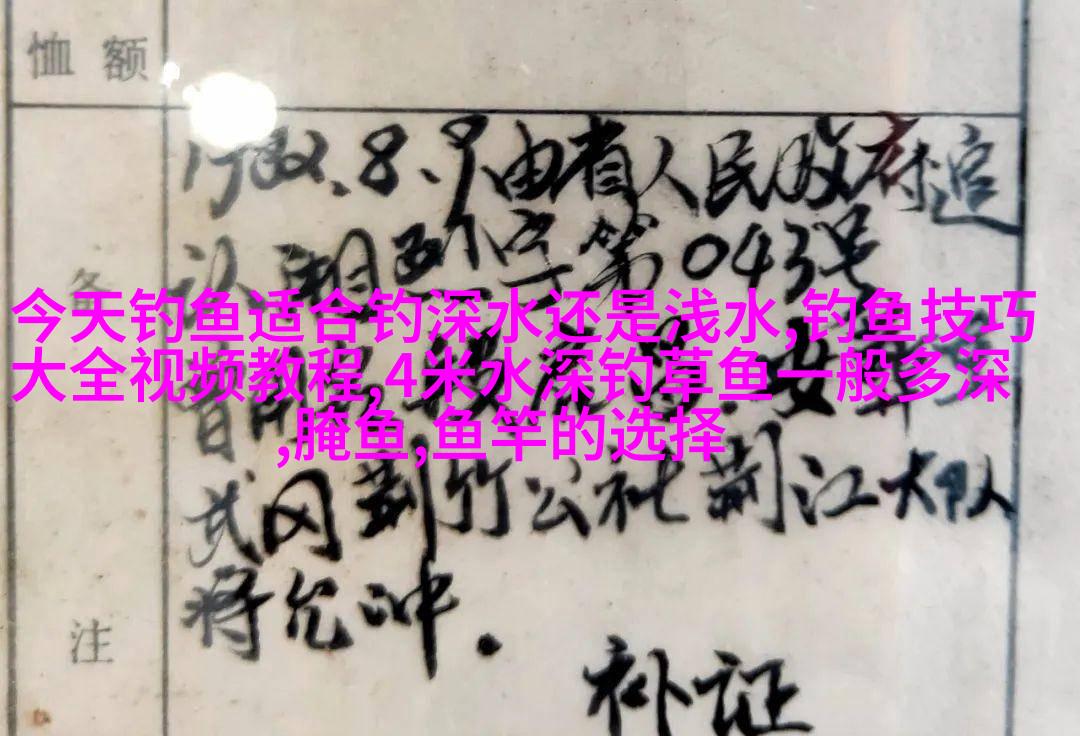 恤额
1982.8.9由省人民政府追
认 湘烈字第043号
备
今天钓鱼适合钓深水还是浅水,钓鱼技巧
大全视频教程,4米水深钓草鱼一般多深
,腌鱼,鱼竿的选择
武冈荆竹公社荆江大队
蒋允冲.
注
补证